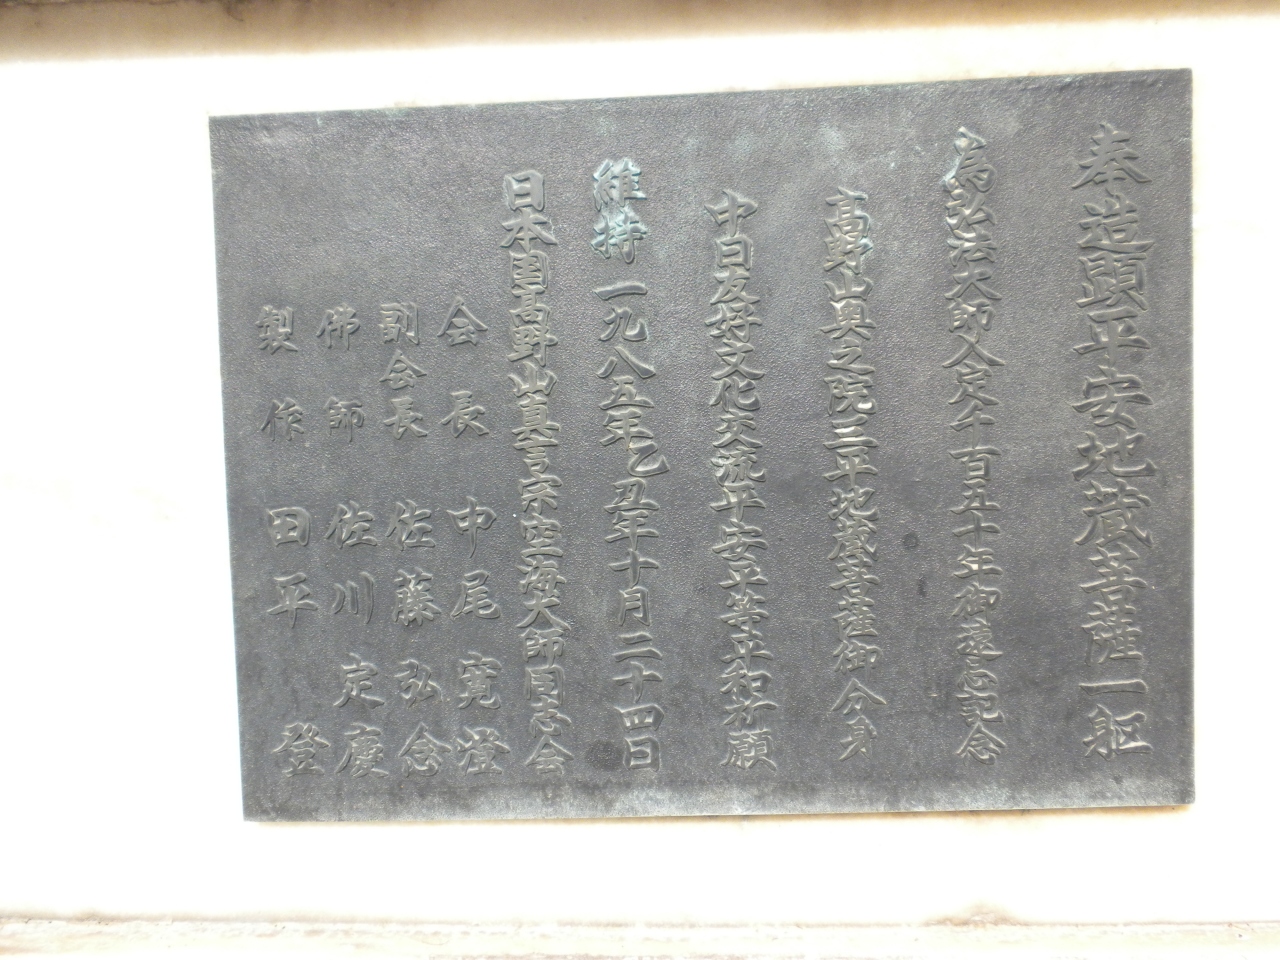 奉造顕平安地蔵菩薩一躯
為弘法大師入定千百五十年御遠忌記念
高野山奥之院三平地蔵菩薩御分身
中日友好文化交流平安平等平和祈願
維持 一九八五年乙丑年十月二十四日
日本国高野山真言宗空海大師同志会
会長 中尾寛澄
副会長 佐藤弘念
佛師 佐川定慶
製作 田平登